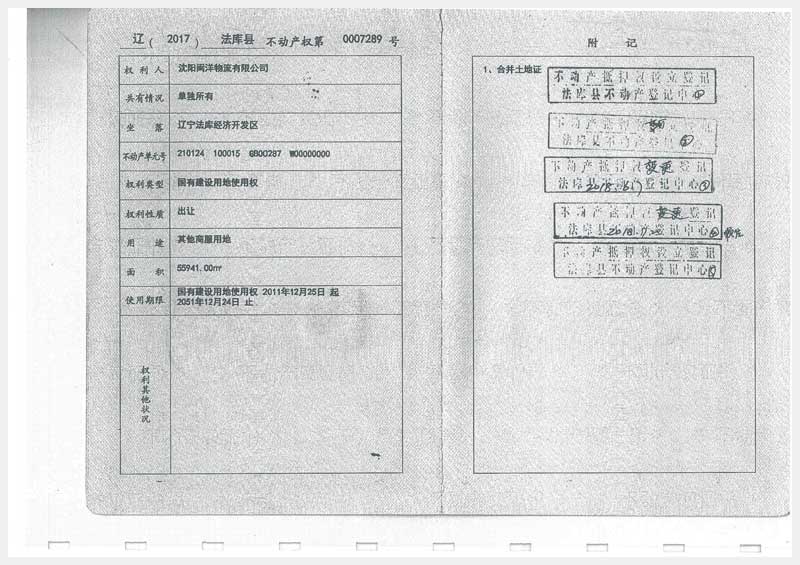 辽（ 2017 ） 法库县 不动产权第 0007289 号
权利人 沈阳闽洋物流有限公司
共有情况 单独所有
坐落 辽宁法库经济开发区
不动产单元号 210124 100015 GB00287 W00000000
权利类型 国有建设用地使用权
权利性质 出让
用途 其他商服用地
面积 55941.00㎡
使用期限 国有建设用地使用权 2011年12月25日 起
2051年12月24日 止
权利其他状况
附 记
1、合并土地证
不动产抵押权设立登记
法库县不动产登记中心
不动产抵押权 登记
法库县不动产登记中心
不动产抵押权变更登记
法库县不动产登记中心
不动产抵押权变更登记
法库县不动产登记中心
不动产抵押权设立登记
法库县不动产登记中心